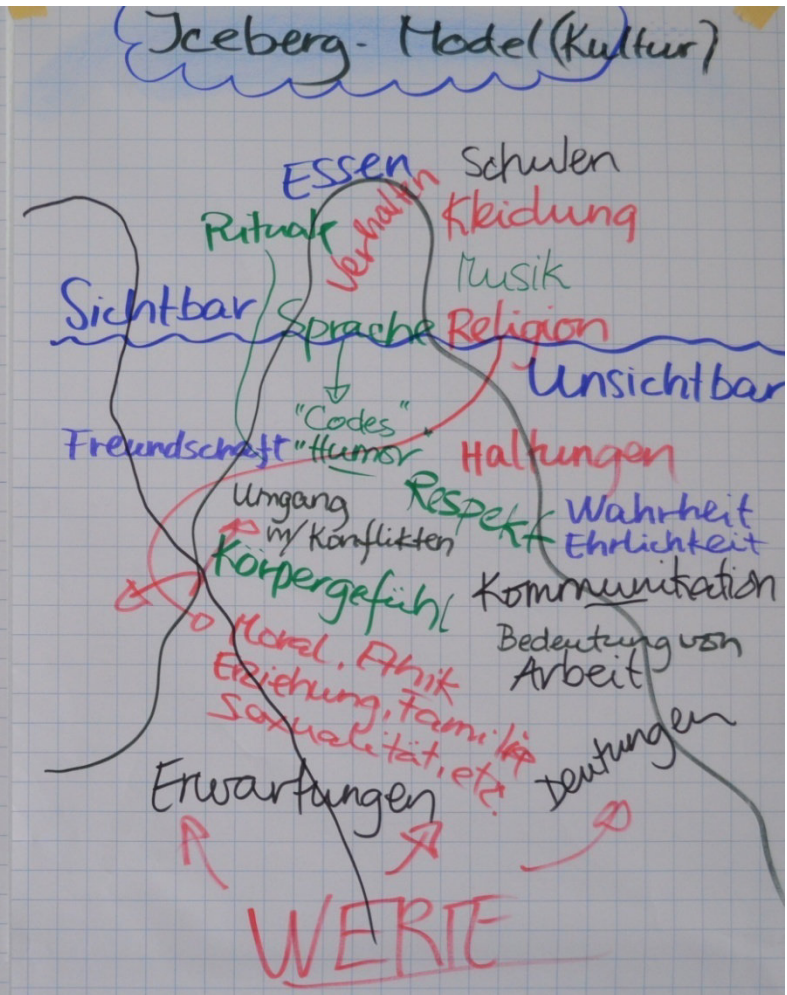 Iceberg-Model (Kultur)
Essen
Schulen
Verhalten
Kleidung
Rituale
Musik
Sichtbar
Sprache
Religion
Unsichtbar
"Codes"
Freundschaft
"Humor
Haltungen
Umgang
m/Konflikten
Respekt
Wahrheit
Ehrlichkeit
Körpergefühl
Kommunikation
Moral, Ethik
Erziehung, Familie
Sexualität, etc.
Bedeutung von
Arbeit
Erwartungen
Deutungen
WERTE